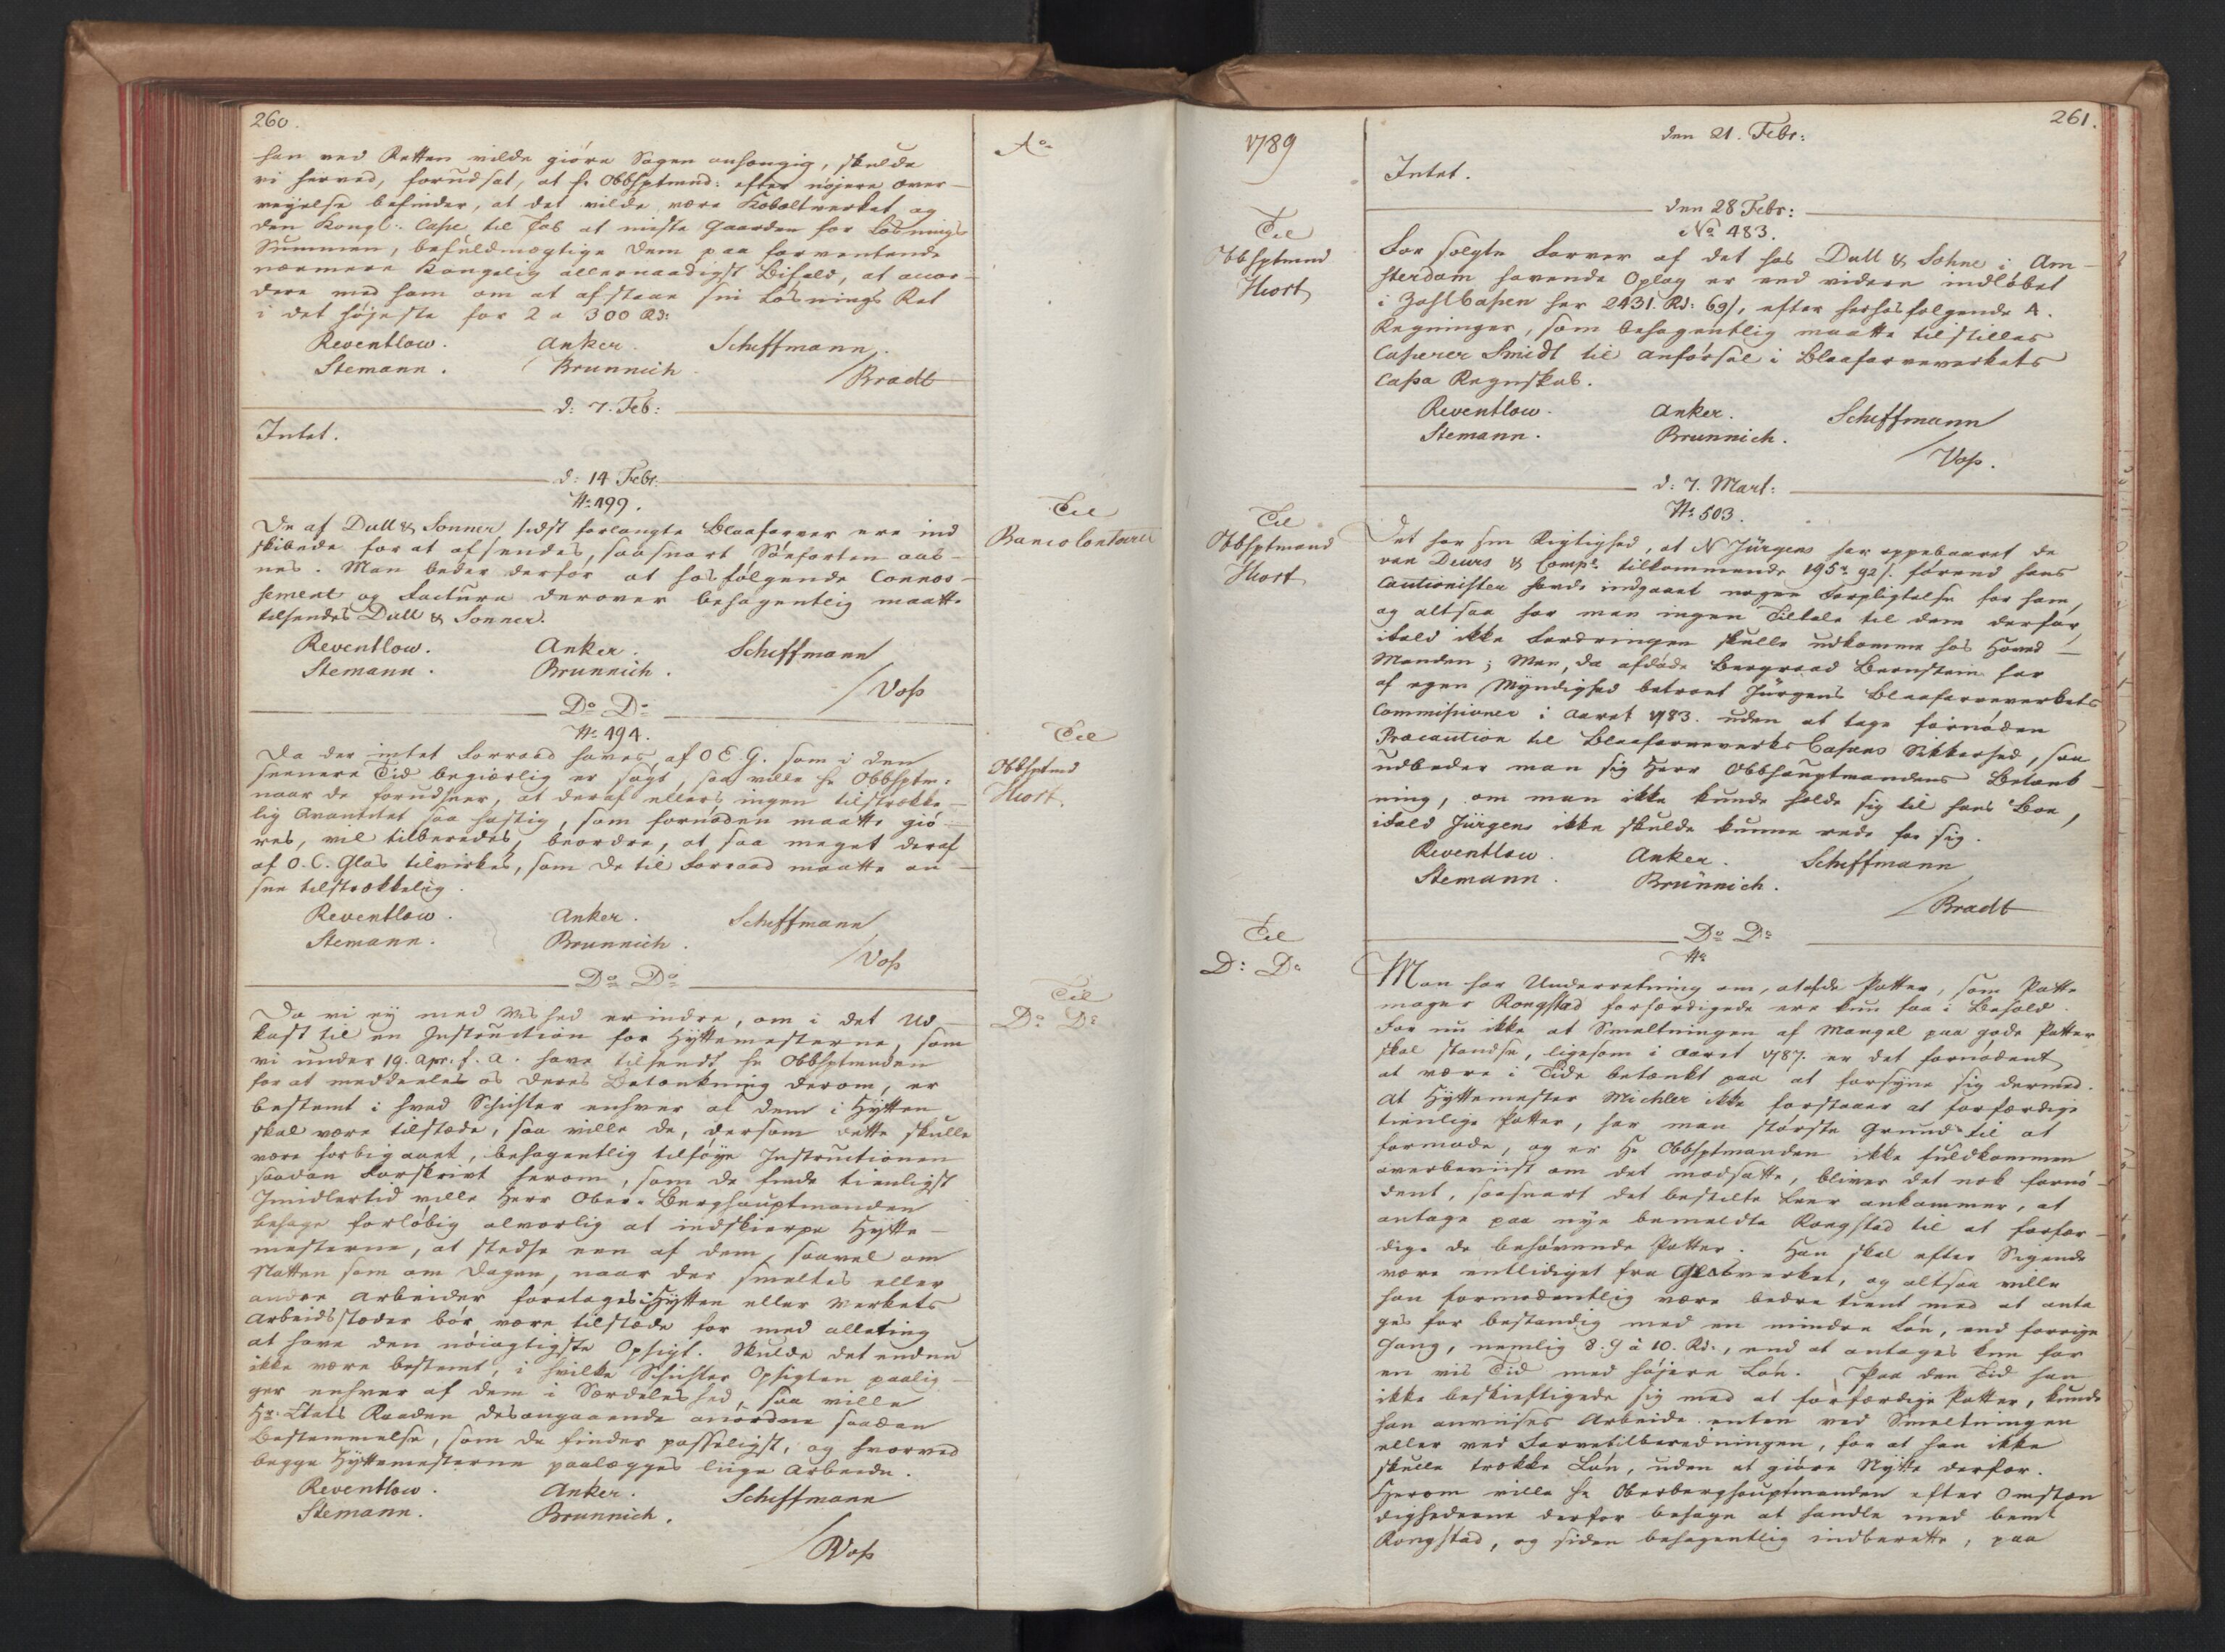 260.
han ved Retten vilde giöre Sagen anhængig, skulde
vi herved, forudsat, at hr Obbhptmnd: efter nöjere over-
vejelse befinder, at det vilde være Koboltverket og
den Kongl. Casse til Tab at miste Gaarden for Lösnings
Summen, befuldmægtige dem paa forventende
nærmere Kongelig allernaadigst Bifald, at accor-
dere med ham om at afstaae sin Lösnings Ret
i det höjeste for 2 a 300 Rd:
Reventlow. Anker. Scheffmann.
Stemann. Brunnich
/Bradt
d: 7. Feb:
Intet.
d: 14 Febr:
No 499.
De af Dull & Sonner sidst forlangte Blaafarver ere ind
skibede for at afsendes, saasnart Söefarten aab-
nes. Man beder derfor at hosfölgende Connos-
sement og Factura derover behagentlig maatte
tilsendes Dull & Sonner.
Reventlow. Anker. Scheffmann
Stemann. Brunnich.
/Voss
Do Do
No 494.
Da der intet Forraad haves af O.E.G. som i den
seenere Tid begiærlig er sögt, saa ville hr Obbhptm:
naar de forudseer, at deraf ellers ingen tilstrække-
lig Qvantitet saa hastig, som fornöden maatte giö-
res, vil tilberedes, beordre, at saa meget deraf
af O.C. Glas tilvirkes, som de til Forraad maatte an-
see tilstrækkelig.
Reventlow. Anker. Scheffmann
Stemann. Brunnich.
/Voss
Do Do
Da vi ey med Vished erindre, om i det Ud-
kast til en Instruction for Hyttemesterne, som
vi under 19. Apr. f. a. have tilsendt hr Obbhptmnden
for at meddeeles os deres Betænkning derom, er
bestemt i hvad Schichter enhver af dem i Hytten
skal være tilstæde, saa ville de, dersom dette skulle
være forbigaaet, behagentlig tilföye Instructionen
saadan Forskrivt herom, som de finde tienligst
Imidlertid ville Herr Ober-Berghauptmanden
behage forlöbig alvorlig at indskierpe Hytte-
mesterne, at stedse een af dem, saavel om
Natten som om Dagen, naar der smeltes eller
andre Arbeider foretages i Hytten eller Verkets
Arbeidsstæder bör være tilstæde for med alleting
at have den nöiagtigste Opsigt. Skulde det endnu
ikke være bestemt, i hvilke Schichter Opsigten paalig-
ger enhver af dem i Særdeleshed, saa ville
Hr. Etats Raaden desangaaende anordne saadan
Bestemmelse, som de finder passeligst, og hvorved
begge Hyttemesterne paalægges liige Arbeide.
Reventlow. Anker. Scheffmann
Stemann. Brunnich.
/Voss
Ao
Til
Banco Contoiret
Til
Obbhptmd
Hiort.
Til
Do Do
1789
Til
Obbhptmnd
Hiort
Til
Obbhptmand
Hiort
Til
Do Do
261.
den 21. Febr:
Intet.
den 28 Febr:
No 483.
For solgte Farver af det hos Dull & Söhne i Am-
sterdam havende Oplag er end videre indlöbet
i Zahlkassen her 2431 Rd: 69/, efter herhos folgende 4.
Regninger, som behagentlig maatte tilstilles
Casserer Smidt til Anförsel i Blaafarveverkets
Cassa Regnskab.
Reventlow. Anker. Scheffmann
Stemann. Brunnich.
/Voss.
d: 7. Mart:
No 503.
Det har sin Rigtighed, at N Jürgens har oppebaaret de
van Deurs & Comp. tilkommende 195 r 92/. förend hans
Cautionister havde indgaaet nogen Forpligtelse for ham,
og altsaa har man ingen Tiltale til dem derfor,
ifald ikke Fordringen skulle udkomme hos Hoved-
Manden; Men, da afdöde Bergraad Bernstein har
af egen Myndighed betroet Jürgens Blaafarveverkets
Commissioner i Aaret 1783. uden at tage fornöden
Præcaution til Blaafarveverks Cassens Sikkerhed, saa
udbeder man sig Herr Obbhauptmandens Betænk-
ning, om man ikke kunde holde sig til hans Boe,
ifald Jürgens ikke skulde kunne rede for sig.
Reventlow. Anker. Scheffmann
Stemann. Brünnich.
/Bradt
Do Do
No
Man har Underretning om, at af de Potter, som Potte-
mager Rongstad forfærdigede ere kun faa i Behold.
For nu ikke at Smeltningen af Mangel paa gode Potter
skal standse, ligesom i Aaret 1787. er det fornödent
at være i Tide betænkt paa at forsyne sig dermed.
At Hyttemester Michler ikke forstaaer at forfærdige
tienlige Potter, har man störste Grund til at
formode, og er Hr Obbhptmanden ikke fuldkommen
overbeviist om det modsatte, bliver det nok fornö-
dent, saasnart det bestilte Leer ankommer, at
antage paa nye bemeldte Rongstad til at forfær-
dige de behövende Potter. Han skal efter Sigende
være entlediget fra Glasverket, og altsaa ville
han formodentlig være bedre tient med at anta
ges for bestandig med en mindre Lön, end forrige
Gang, nemlig 8. 9 à 10. Rd:, end at antages kun for
en vis Tid med höjere Lön. Paa den Tid han
ikke beskieftigede sig med at forfærdige Potter, kunde
han anvises Arbeide enten ved Smeltningen
eller ved Farvetilberedningen, for at han ikke
skulle trække Lön, uden at giöre Nytte derfor.
Herom ville hr Oberberghauptmanden efter Omstæn
dighederne derfor behage at handle med bemte
Rongstad, og siden behagentlig indberette, paa